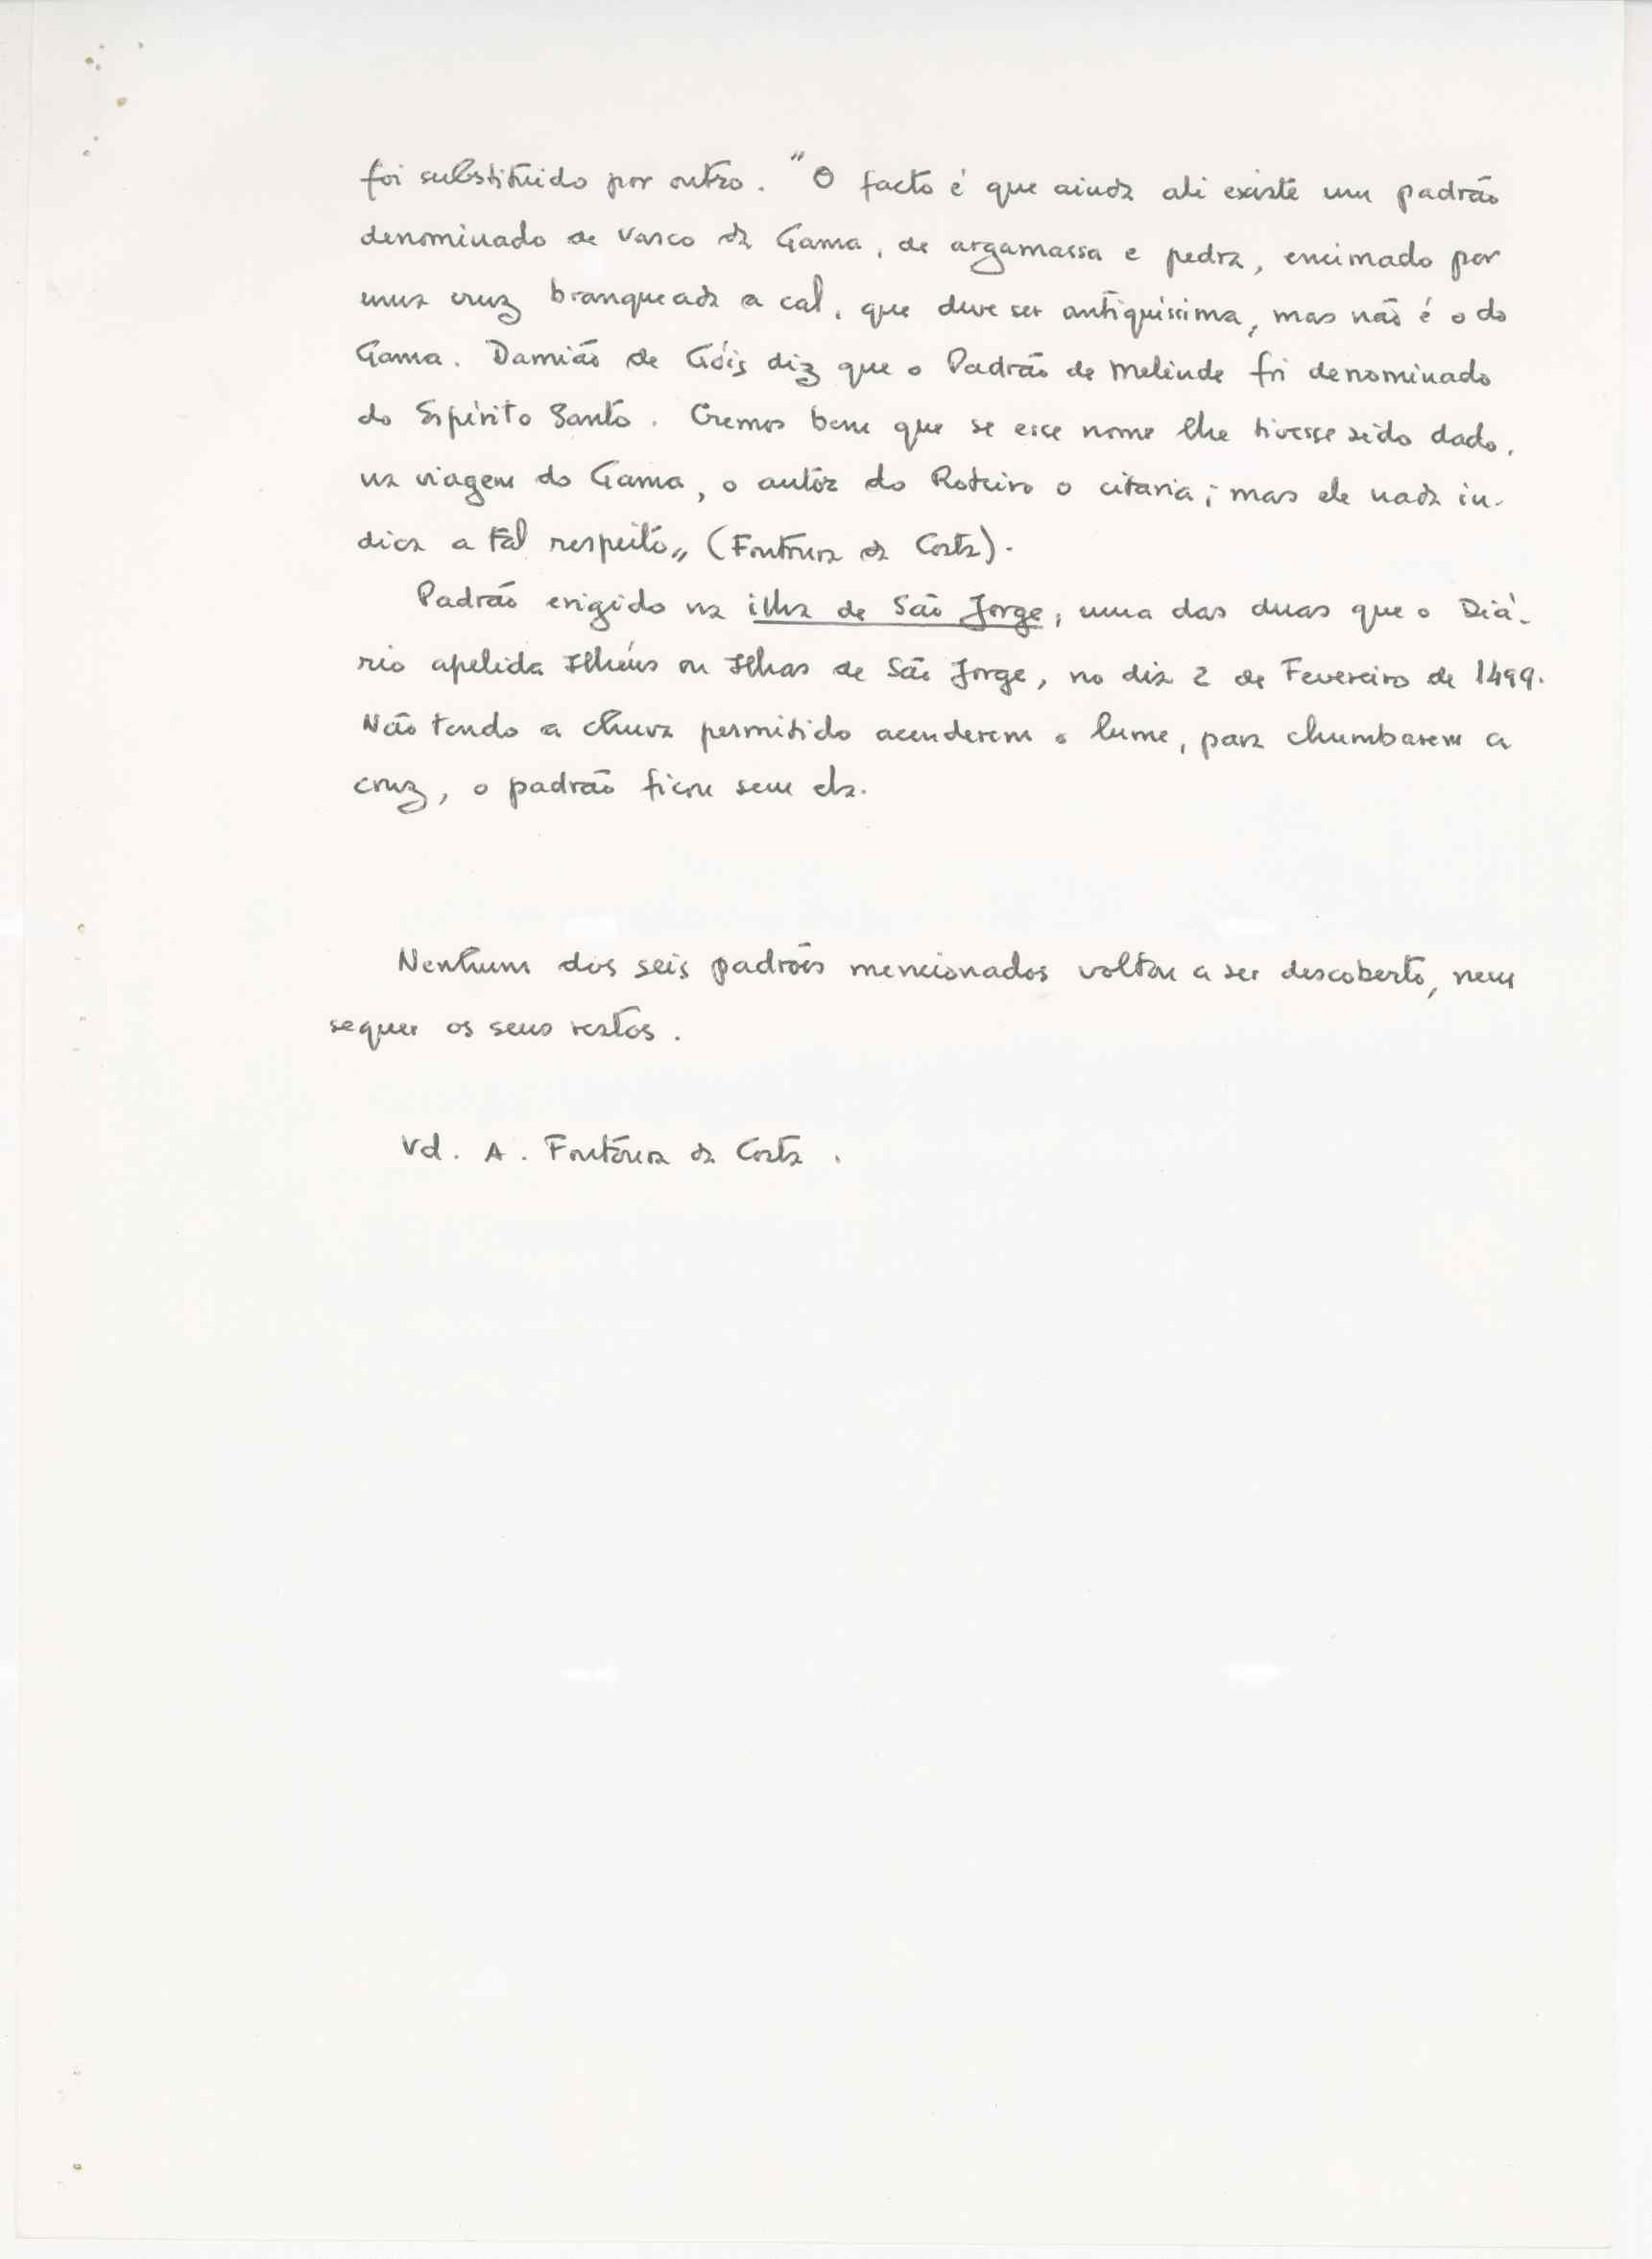 foi substituido por outro. "O facto é que ainda ali existe um padrão
denominado de Vasco da Gama, de argamassa e pedra, encimado por
uma cruz branqueada a cal, que deve ser antiquíssima, mas não é o do
Gama. Damião de Góis diz que o Padrão de Melinde foi denominado
do Espírito Santo. Cremos bem que se esse nome lhe tivesse sido dado,
na viagem do Gama, o autor do Roteiro o citaria; mas ele nada in-
dica a tal respeito„ (Fontoura da Costa).
Padrão erigido na ilha de São Jorge, uma das duas que o Diá-
rio apelida Ilhéus ou Ilhas de São Jorge, no dia 2 de Fevereiro de 1499.
Não tendo a chuva permitido acenderem o lume, para chumbarem a
cruz, o padrão ficou sem ela.
Nenhum dos seis padrões mencionados voltou a ser descoberto, nem
sequer os seus restos.
Vd. A. Fontoura da Costa.